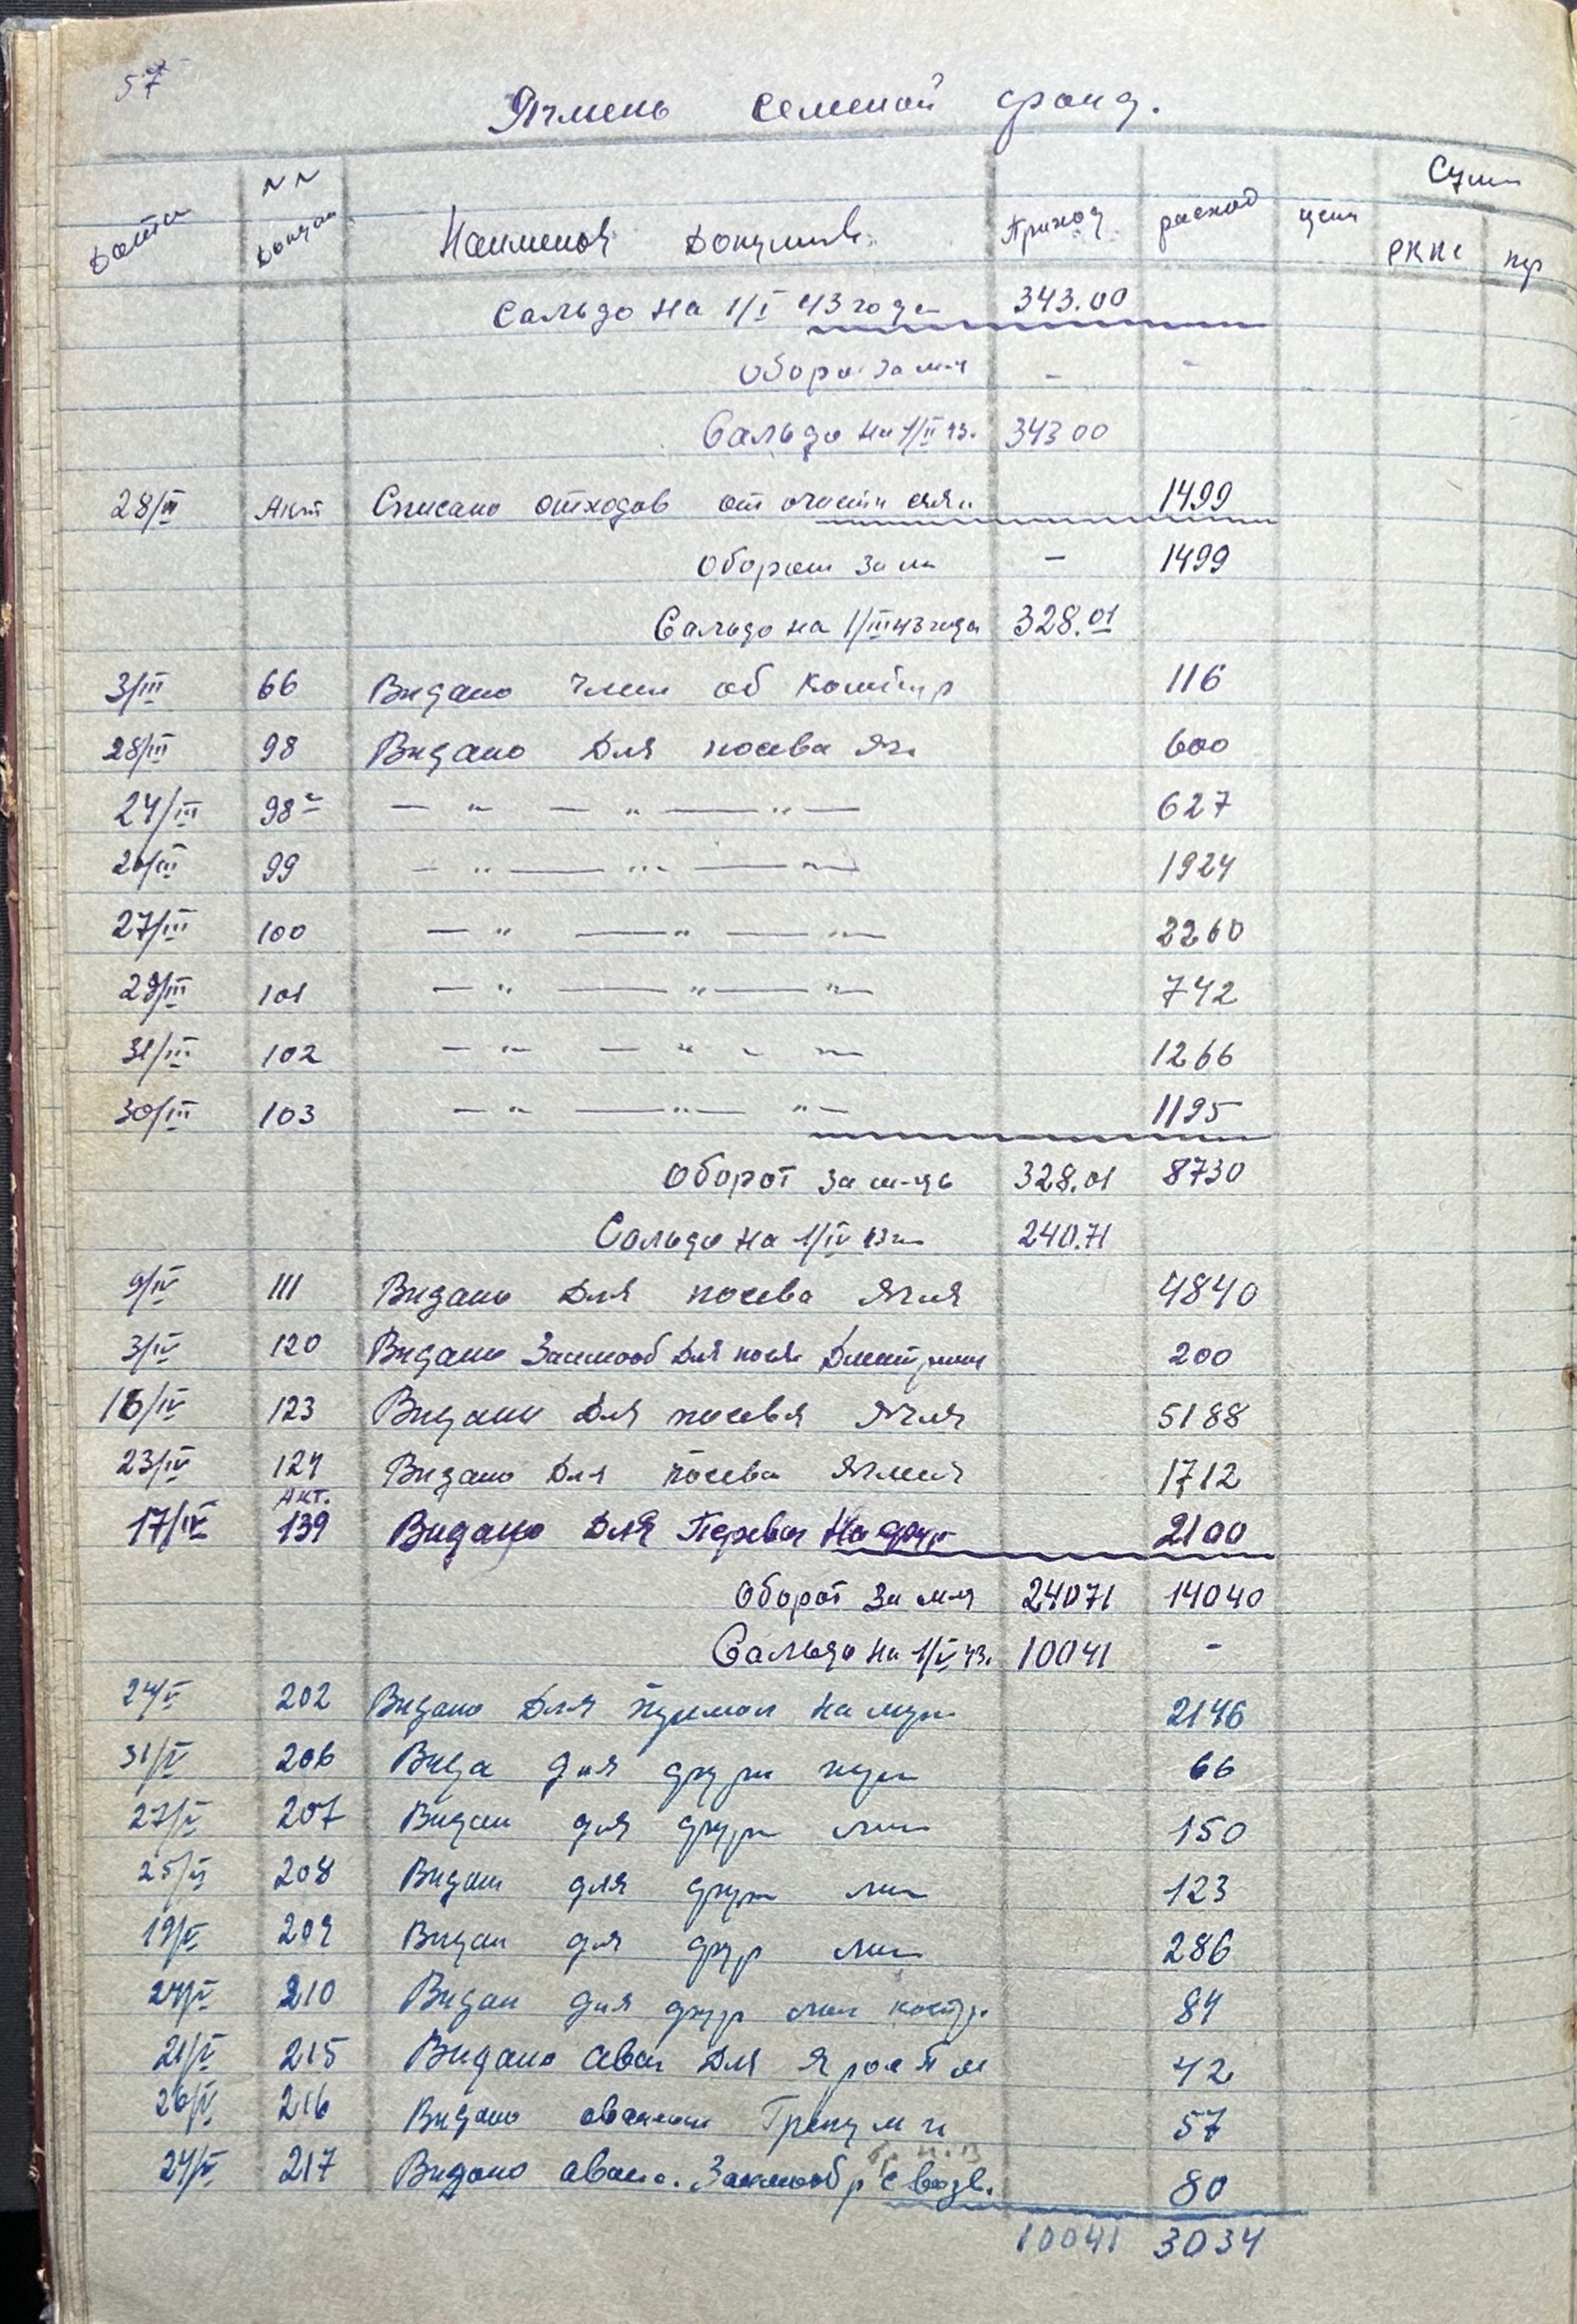 57
Ячмень семеной фонд.
Дата
NN Докум
Наименов Докумен
Приход
расход
цена
Сум
РККС
пур
Сальдо на 1/I 43 года 343.00
Оборо за м-ц - -
Сальдо на 1/II 43. 343 00
28/II Акт Списано отходов от очистки 1499
Оборот за м - 1499
Сальдо на 1/III 43 года 328.01
3/III 66 Видано член об 116
28/III 98 Видано Для посева яч 600
24/III 98 — " — " — " — 627
26/III 99 — " — " — " — 1924
27/III 100 — " — " — " — 2260
29/III 101 — " — " — " — 742
31/III 102 — " — " — " — 1266
30/III 103 — " — " — " — 1195
Оборот за м-ць 328.01 8730
Сальдо на 1/IV 43 240.71
9/IV 111 Видано Для посева ячмя 4840
3/IV 120 Видано Заимооб Для 200
16/IV 123 Видано Для посева ячмя 5188
23/IV 124 Видано Для посева ячменя 1712
17/IV Акт. 139 Видано Для На 2100
Оборот за м-ц 24071 14040
Сальдо на 1/V 43. 10041 -
24/V 202 Видано Для на 2146
31/V 206 Вида для 66
27/V 207 Видан для 150
25/V 208 Видан для 123
19/V 209 Видан для 286
24/V 210 Видан для 84
21/V 215 Видано аван Для 42
26/V 216 Видано 57
24/V 217 Видано аванс. Заимообр с возв. 80
10041 3034